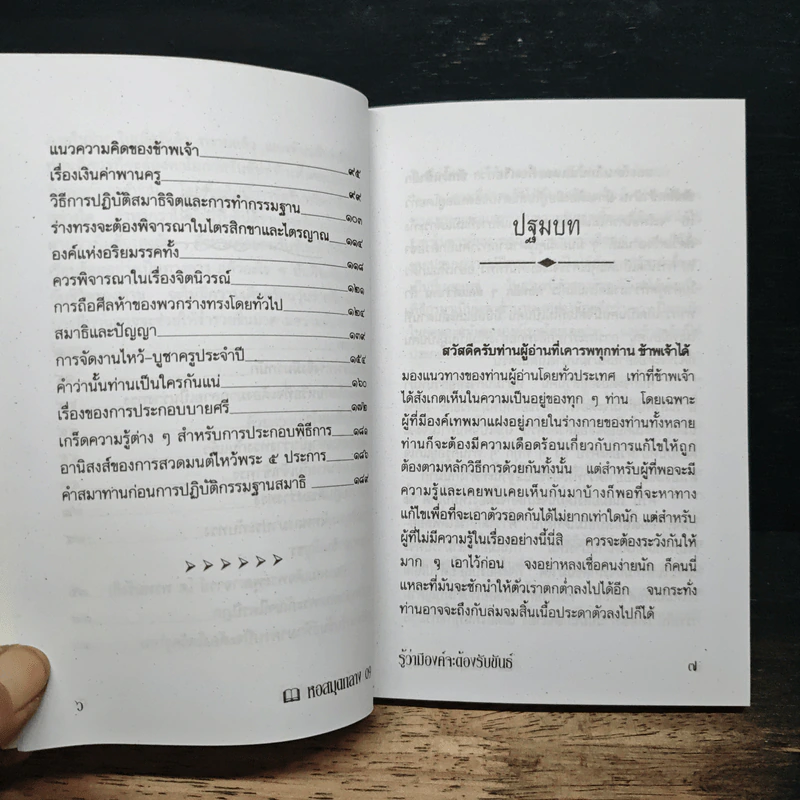 แนวความคิดของข้าพเจ้า ๙๕
เรื่องเงินค่าพานครู ๙๙
วิธีการปฏิบัติสมาธิจิตและการทำกรรมฐาน ๑๐๓
ร่างทรงจะต้องพิจารณาในไตรสิกขาและไตรญาณ ๑๑๔
องค์แห่งอริยมรรคทั้ง ๑๑๘
ควรพิจารณาในเรื่องจิตนิวรณ์ ๑๒๑
การถือศีลห้าของพวกร่างทรงโดยทั่วไป ๑๒๔
สมาธิและปัญญา ๑๓๙
การจัดงานไหว้-บูชาครูประจำปี ๑๕๔
คำว่านั้นท่านเป็นใครกันแน่ ๑๖๐
เรื่องของการประกอบบายศรี ๑๗๒
เกร็ดความรู้ต่าง ๆ สำหรับการประกอบพิธีการ ๑๘๑
อานิสงส์ของการสวดมนต์ไหว้พระ ๕ ประการ ๑๘๖
คำสมาทานก่อนการปฏิบัติกรรมฐานสมาธิ ๑๘๙
๖
หอสมุดกลาง 09
ปฐมบท
สวัสดีครับท่านผู้อ่านที่เคารพทุกท่าน ข้าพเจ้าได้
มองแนวทางของท่านผู้อ่านโดยทั่วประเทศ เท่าที่ข้าพเจ้า
ได้สังเกตเห็นในความเป็นอยู่ของทุก ๆ ท่าน โดยเฉพาะ
ผู้ที่มีองค์เทพมาแฝงอยู่ภายในร่างกายของท่านทั้งหลาย
ท่านก็จะต้องมีความเดือดร้อนเกี่ยวกับการแก้ไขให้ถูก
ต้องตามหลักวิธีการด้วยกันทั้งนั้น แต่สำหรับผู้ที่พอจะมี
ความรู้และเคยพบเคยเห็นกันมาบ้างก็พอที่จะหาทาง
แก้ไขเพื่อที่จะเอาตัวรอดกันได้ไม่ยากเท่าใดนัก แต่สำหรับ
ผู้ที่ไม่มีความรู้ในเรื่องอย่างนี้นี่สิ ควรจะต้องระวังกันให้
มาก ๆ เอาไว้ก่อน จงอย่าหลงเชื่อคนง่ายนัก ก็คนนี่
แหละที่มันจะชักนำให้ตัวเราตกต่ำลงไปได้อีก จนกระทั่ง
ท่านอาจจะถึงกับล่มจมสิ้นเนื้อประดาตัวลงไปก็ได้
รู้ว่ามีองค์จะต้องรับขันธ์ ๗